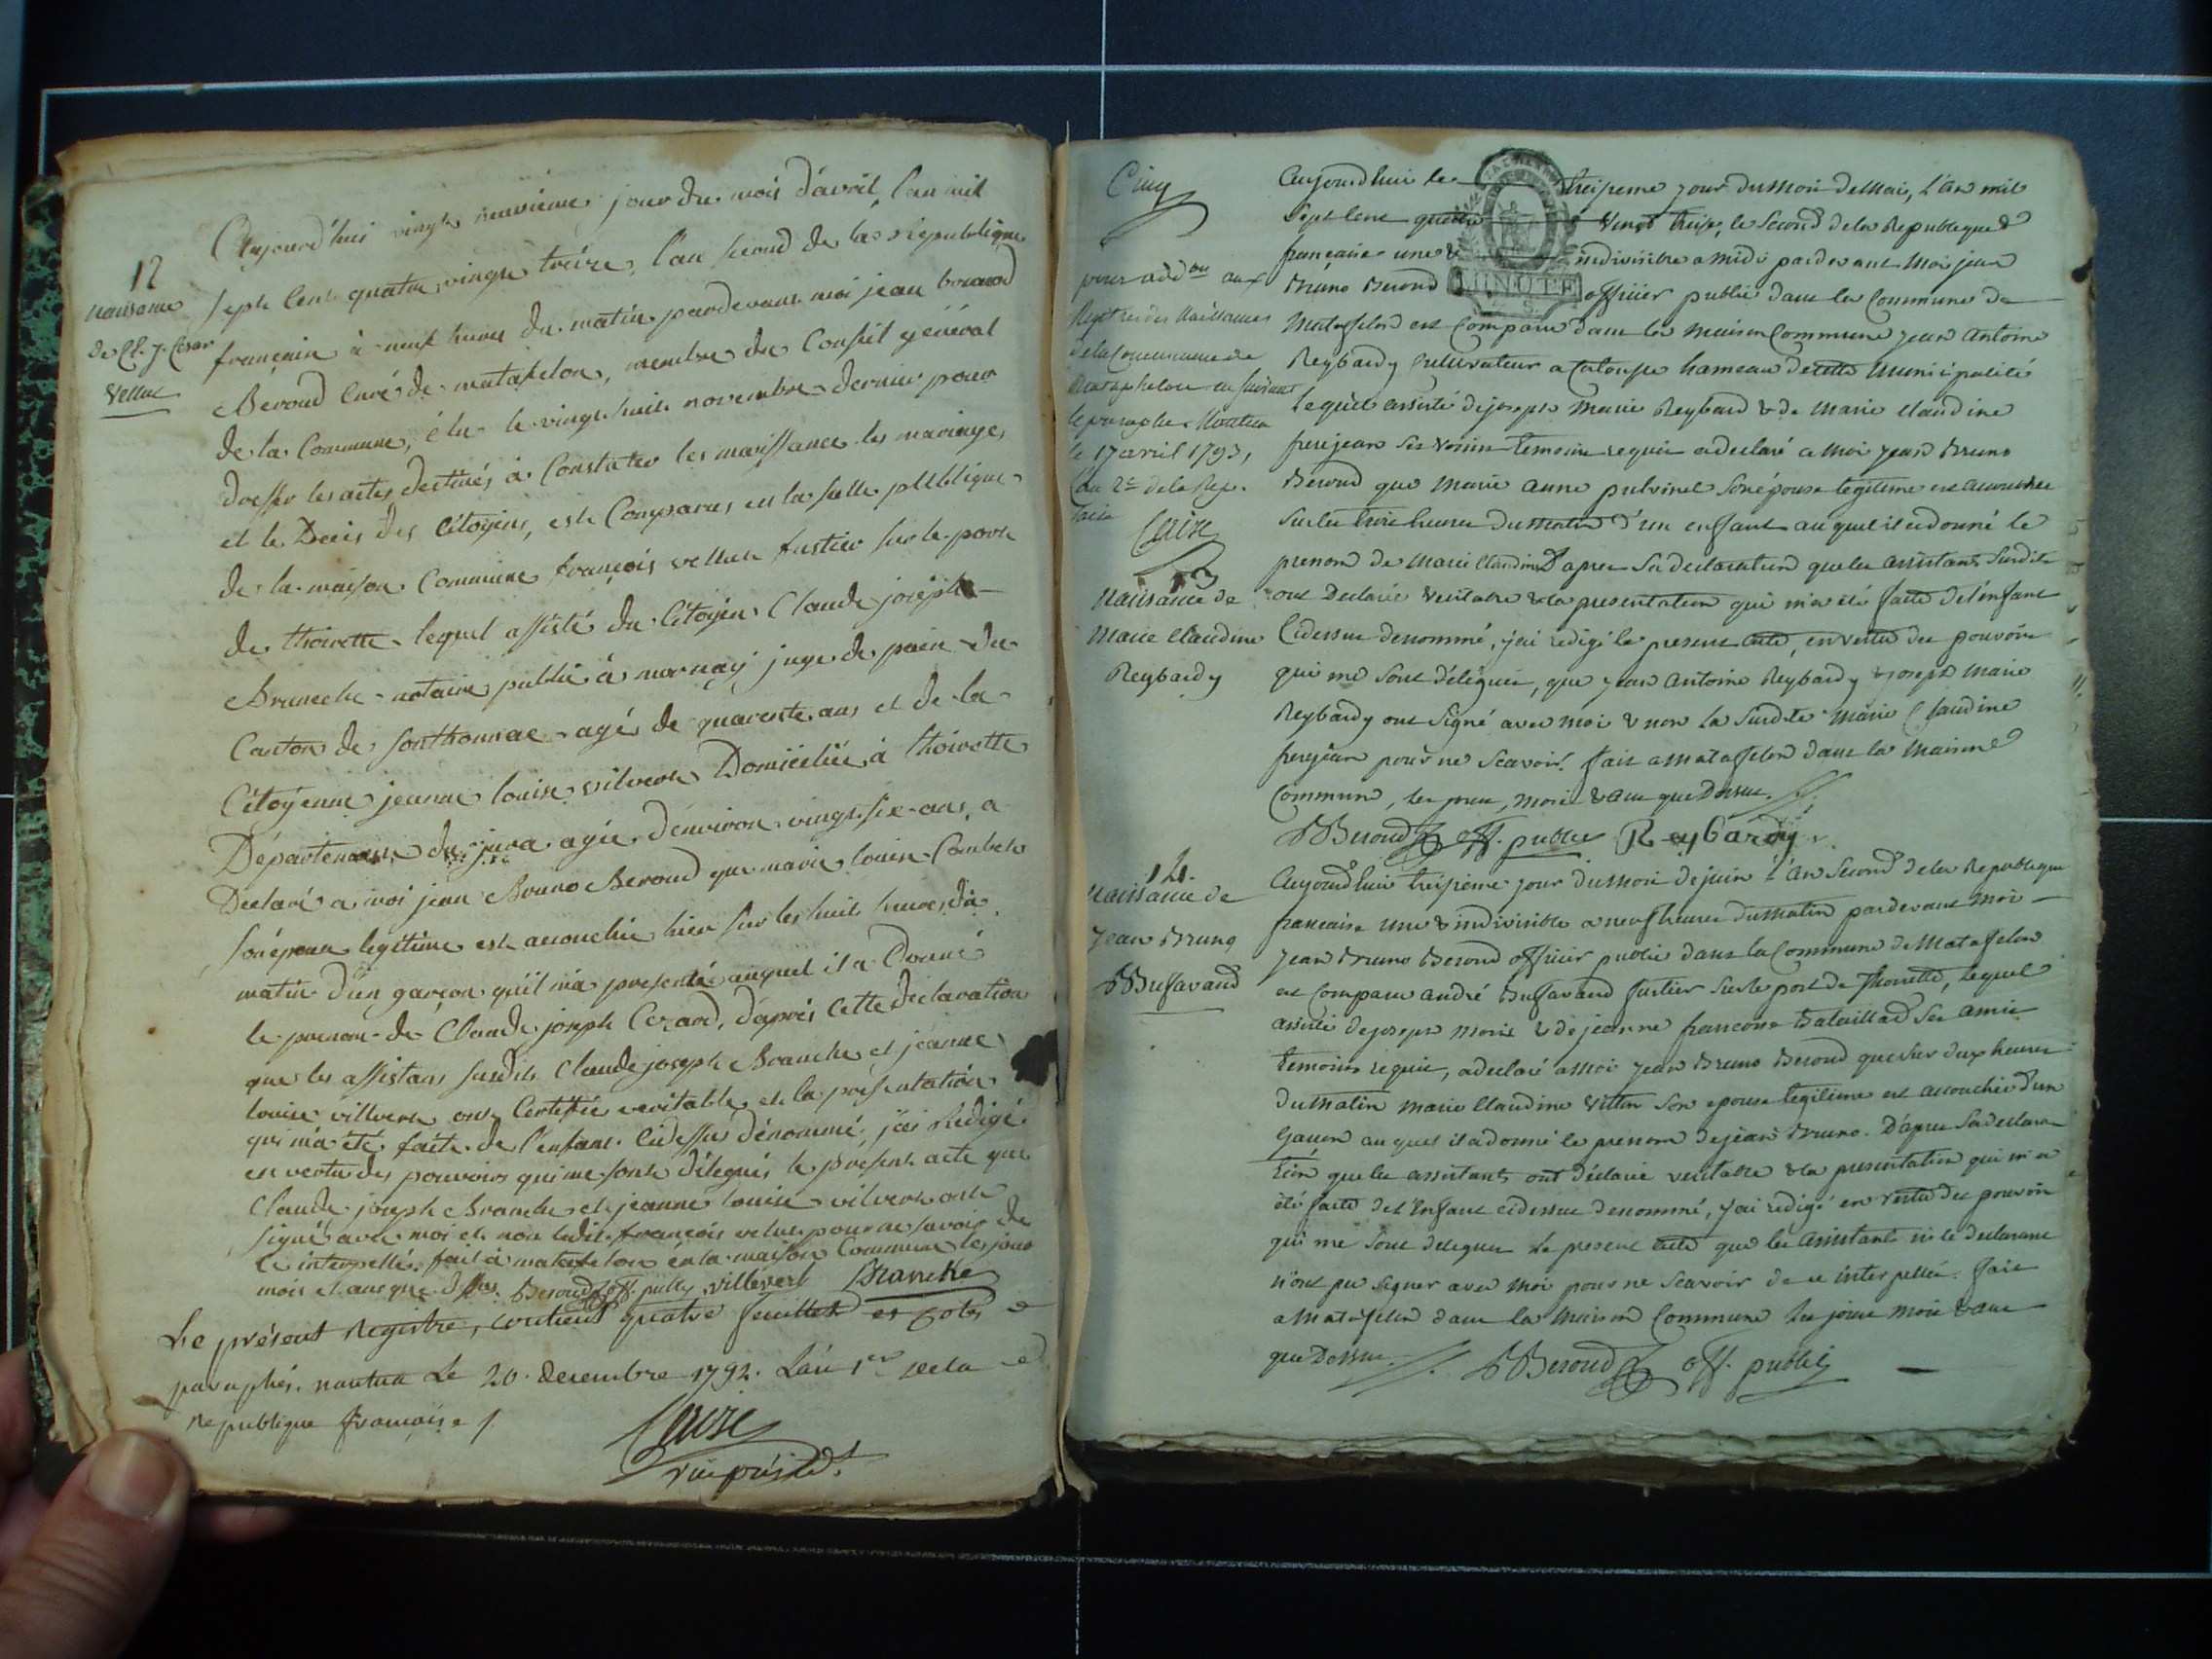 12
naissance
de Cl. j. César
Vellut
Aujourd'hui vingt neuvieme jour du mois d'avril, l'an mil
sept cent quatre vingt treize, l'an second de la republique
française à neuf heures du matin pardevant moi jean bruno
Beroud curé de matafelon, membre du Conseil général
de la Commune, élu le vingt huit novembre dernier pour
dresser les actes destinés à Constater les naissances les mariages
et le Décès des Citoyens, est Comparu en la salle publique
de la maison Commune françois vellut fustier sur le port
de thoirette lequel assisté du Citoyen Claude joseph
Branche notaire public à marnay juge de paix du
Canton de sonthonnac agé de quarente ans et de la
Citoyenne jeanne louise vilvert Domiciliée à thoirette
Département du jura agée d'environ vingt six ans, a
Declaré a moi jean Bruno Beroud que marie louise
son épouse legitime est accouchée hier sur les huit heures du
matin d'un garçon qu'il m'a presenté auquel il a Donné
le prenom de Claude joseph Cezard, d'après cette déclaration
que les assistans susdits Claude joseph Branche et jeanne
louise villvert ont Certifié veritable et la présentation
qui m'a été faite de l'enfant cidessus dénommé, j'ai rédigé
en vertu des pouvoirs qui me sont délegués le présent acte que
Claude joseph Branche et jeanne louise vilvert ont
signé avec moi et non ledit françois velut pour ne savoir de
ce interpellé. fait à matafelon en la maison Commune les jour
mois et an que dessus. Beroud off. public villevert Branche
Le présent Registre, contient quatre feuillets et cotés
paraphés. nantua Le 20. decembre 1792. L'an 1er de la
republique française /.
vice présidt.
Cinq
pour addon aux
Registres des Naissances
de la Commune de
Matafelon
Nantua
le 17 avril 1793,
l'an 2e de la Rep.
13
Naissance de
Marie Claudine
Reybardy
Aujourd'hui le treizieme jour du mois de Mai, l'an mil
sept cent quatre vingt treize, le second de la Republique
française une & indivisible a midi pardevant moi jean
Bruno Beroud officier public dans la Commune de
Matafelon est Comparu dans la maison Commune jean Antoine
Reybardy Cultivateur a hameau de cette Municipalité
lequel assisté de joseph Marie Reybard & de Marie Claudine
frerejean ses voisins temoins requis a declaré a moi jean Bruno
Beroud que Marie Anne son épouse legitime est accouchée
sur les trois heures du matin d'un enfant auquel il a donné le
prenom de Marie Claudine D'apres sa declaration que les assistants susdits
ont Declarée veritable & la presentation qui m'a été faite de l'enfant
Cidessus denommé, j'ai redigé le present acte, en vertu des pouvoirs
qui me sont délegués, que jean Antoine Reybardy & joseph Marie
Reybardy ont signé avec moi & non la susdite Marie Claudine
frerejean pour ne scavoir. fait a matafelon dans la Maison
Commune, les jour, mois & an que Dessus.
Beroud off. public Reybardy
MINUTE
14.
Naissance de
Jean Bruno
Buffavand
Aujourd'hui treizieme jour du mois de juin l'An Second de la Republique
française une & indivisible a neuf heures du matin pardevant moi
jean Bruno Beroud officier public dans la Commune de Matafelon
est Comparu andré Buffavand fustier sur le port de Thoirette, lequel
assisté de joseph Morie & de jeanne francoise Bataillard ses amis
temoins requis, a declaré a moi jean Bruno Beroud que sur deux heures
du matin Marie Claudine Vittin son epouse legitime est accouchée d'un
Garçon auquel il a donné le prenom de jean Bruno. D'apres sa declara
tion que les assistants ont déclarée veritable & la presentation qui m'a
été faite de l'Enfant cidessus denommé, j'ai redigé en vertu des pouvoirs
qui me sont delegués le present acte que les assistants ni le declarant
n'ont pu signer avec moi pour ne scavoir de ce interpellés. fait
a Matafelon dans la maison Commune les jour mois & an
que Dessus. Beroud off. public